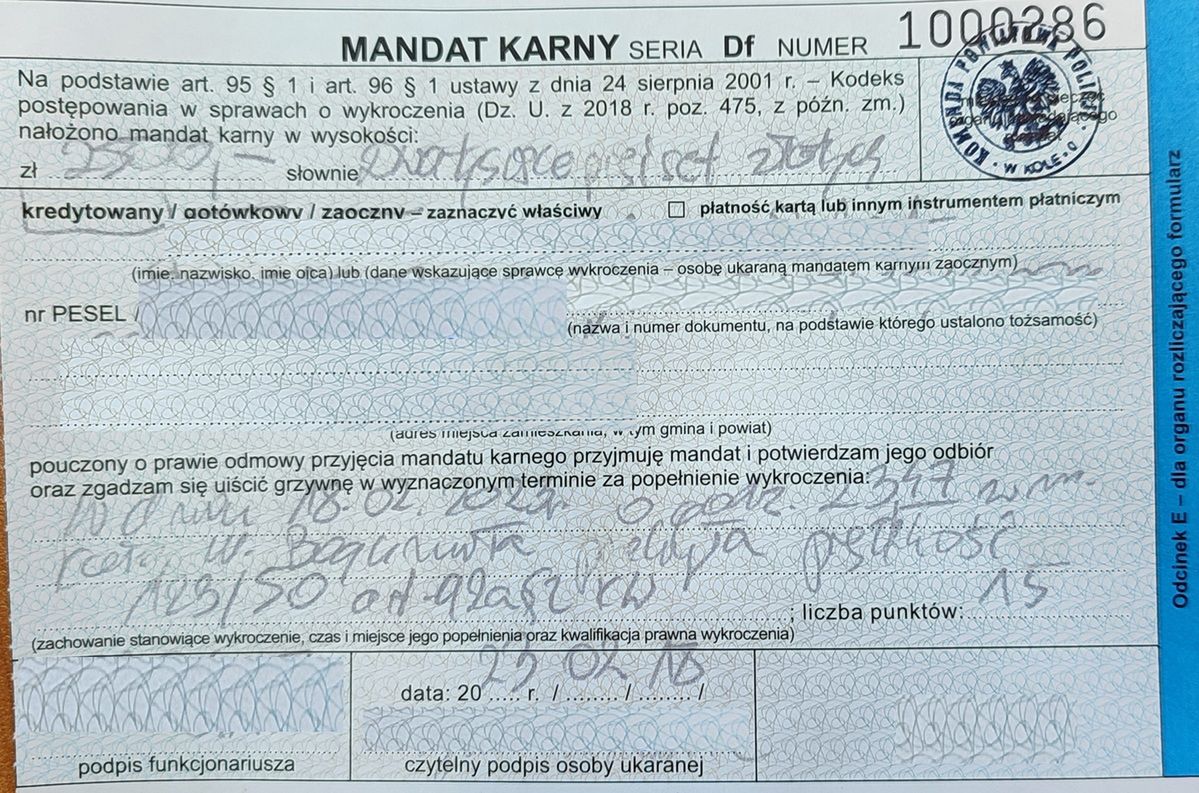 MANDAT KARNY SERIA Df NUMER 1000286
Na podstawie art. 95 § 1 i art. 96 § 1 ustawy z dnia 24 sierpnia 2001 r. – Kodeks
postępowania w sprawach o wykroczenia (Dz. U. z 2018 r. poz. 475, z późn. zm.)
nałożono mandat karny w wysokości:
zł 2500,- słownie dwa tysiące pięćset złotych
KOMENDA POWIATOWA POLICJI W KOLE
kredytowany / gotówkowy / zaoczny – zaznaczyć właściwy
płatność kartą lub innym instrumentem płatniczym
(imię, nazwisko, imię ojca) lub (dane wskazujące sprawcę wykroczenia – osobę ukaraną mandatem karnym zaocznym)
nr PESEL
(nazwa i numer dokumentu, na podstawie którego ustalono tożsamość)
(adres miejsca zamieszkania, w tym gmina i powiat)
pouczony o prawie odmowy przyjęcia mandatu karnego przyjmuję mandat i potwierdzam jego odbiór
oraz zgadzam się uiścić grzywnę w wyznaczonym terminie za popełnienie wykroczenia:
W dniu 18.02.2023r. o godz. 2347 w m.
prędkość
123/50 art. 92a§2 kw ; liczba punktów: 15
(zachowanie stanowiące wykroczenie, czas i miejsce jego popełnienia oraz kwalifikacja prawna wykroczenia)
data: 20 23 r. / 02 / 18 /
podpis funkcjonariusza
czytelny podpis osoby ukaranej
Odcinek E – dla organu rozliczającego formularz